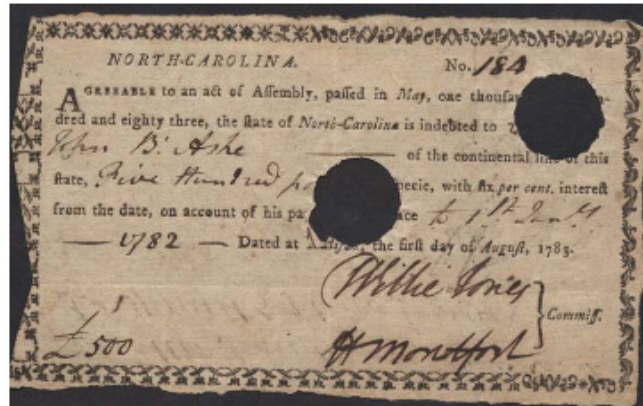 NORTH-CAROLINA. No. 184
AGREEABLE to an act of Assembly, passed in May, one
dred and eighty three, the state of North-Carolina is indebted to
John B. Ashe of the continental line of this
state, Five Hundred specie, with six per cent. interest
from the date, on account of his to 1st Jany
1782 Dated at the first day of August, 1783.
Willie Jones
Commiss.
£500 H Montfort